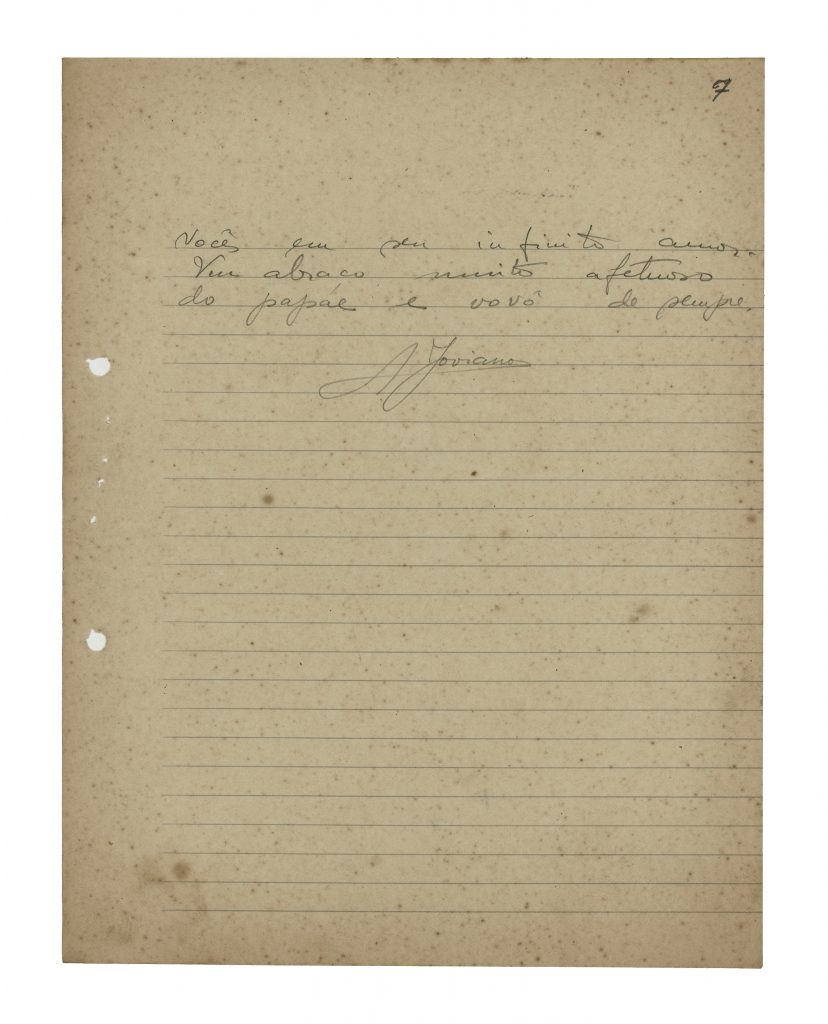 7
vocês em seu infinito amor.
Um abraço muito afetuoso
do papáe e vovô de sempre,
A Joviano